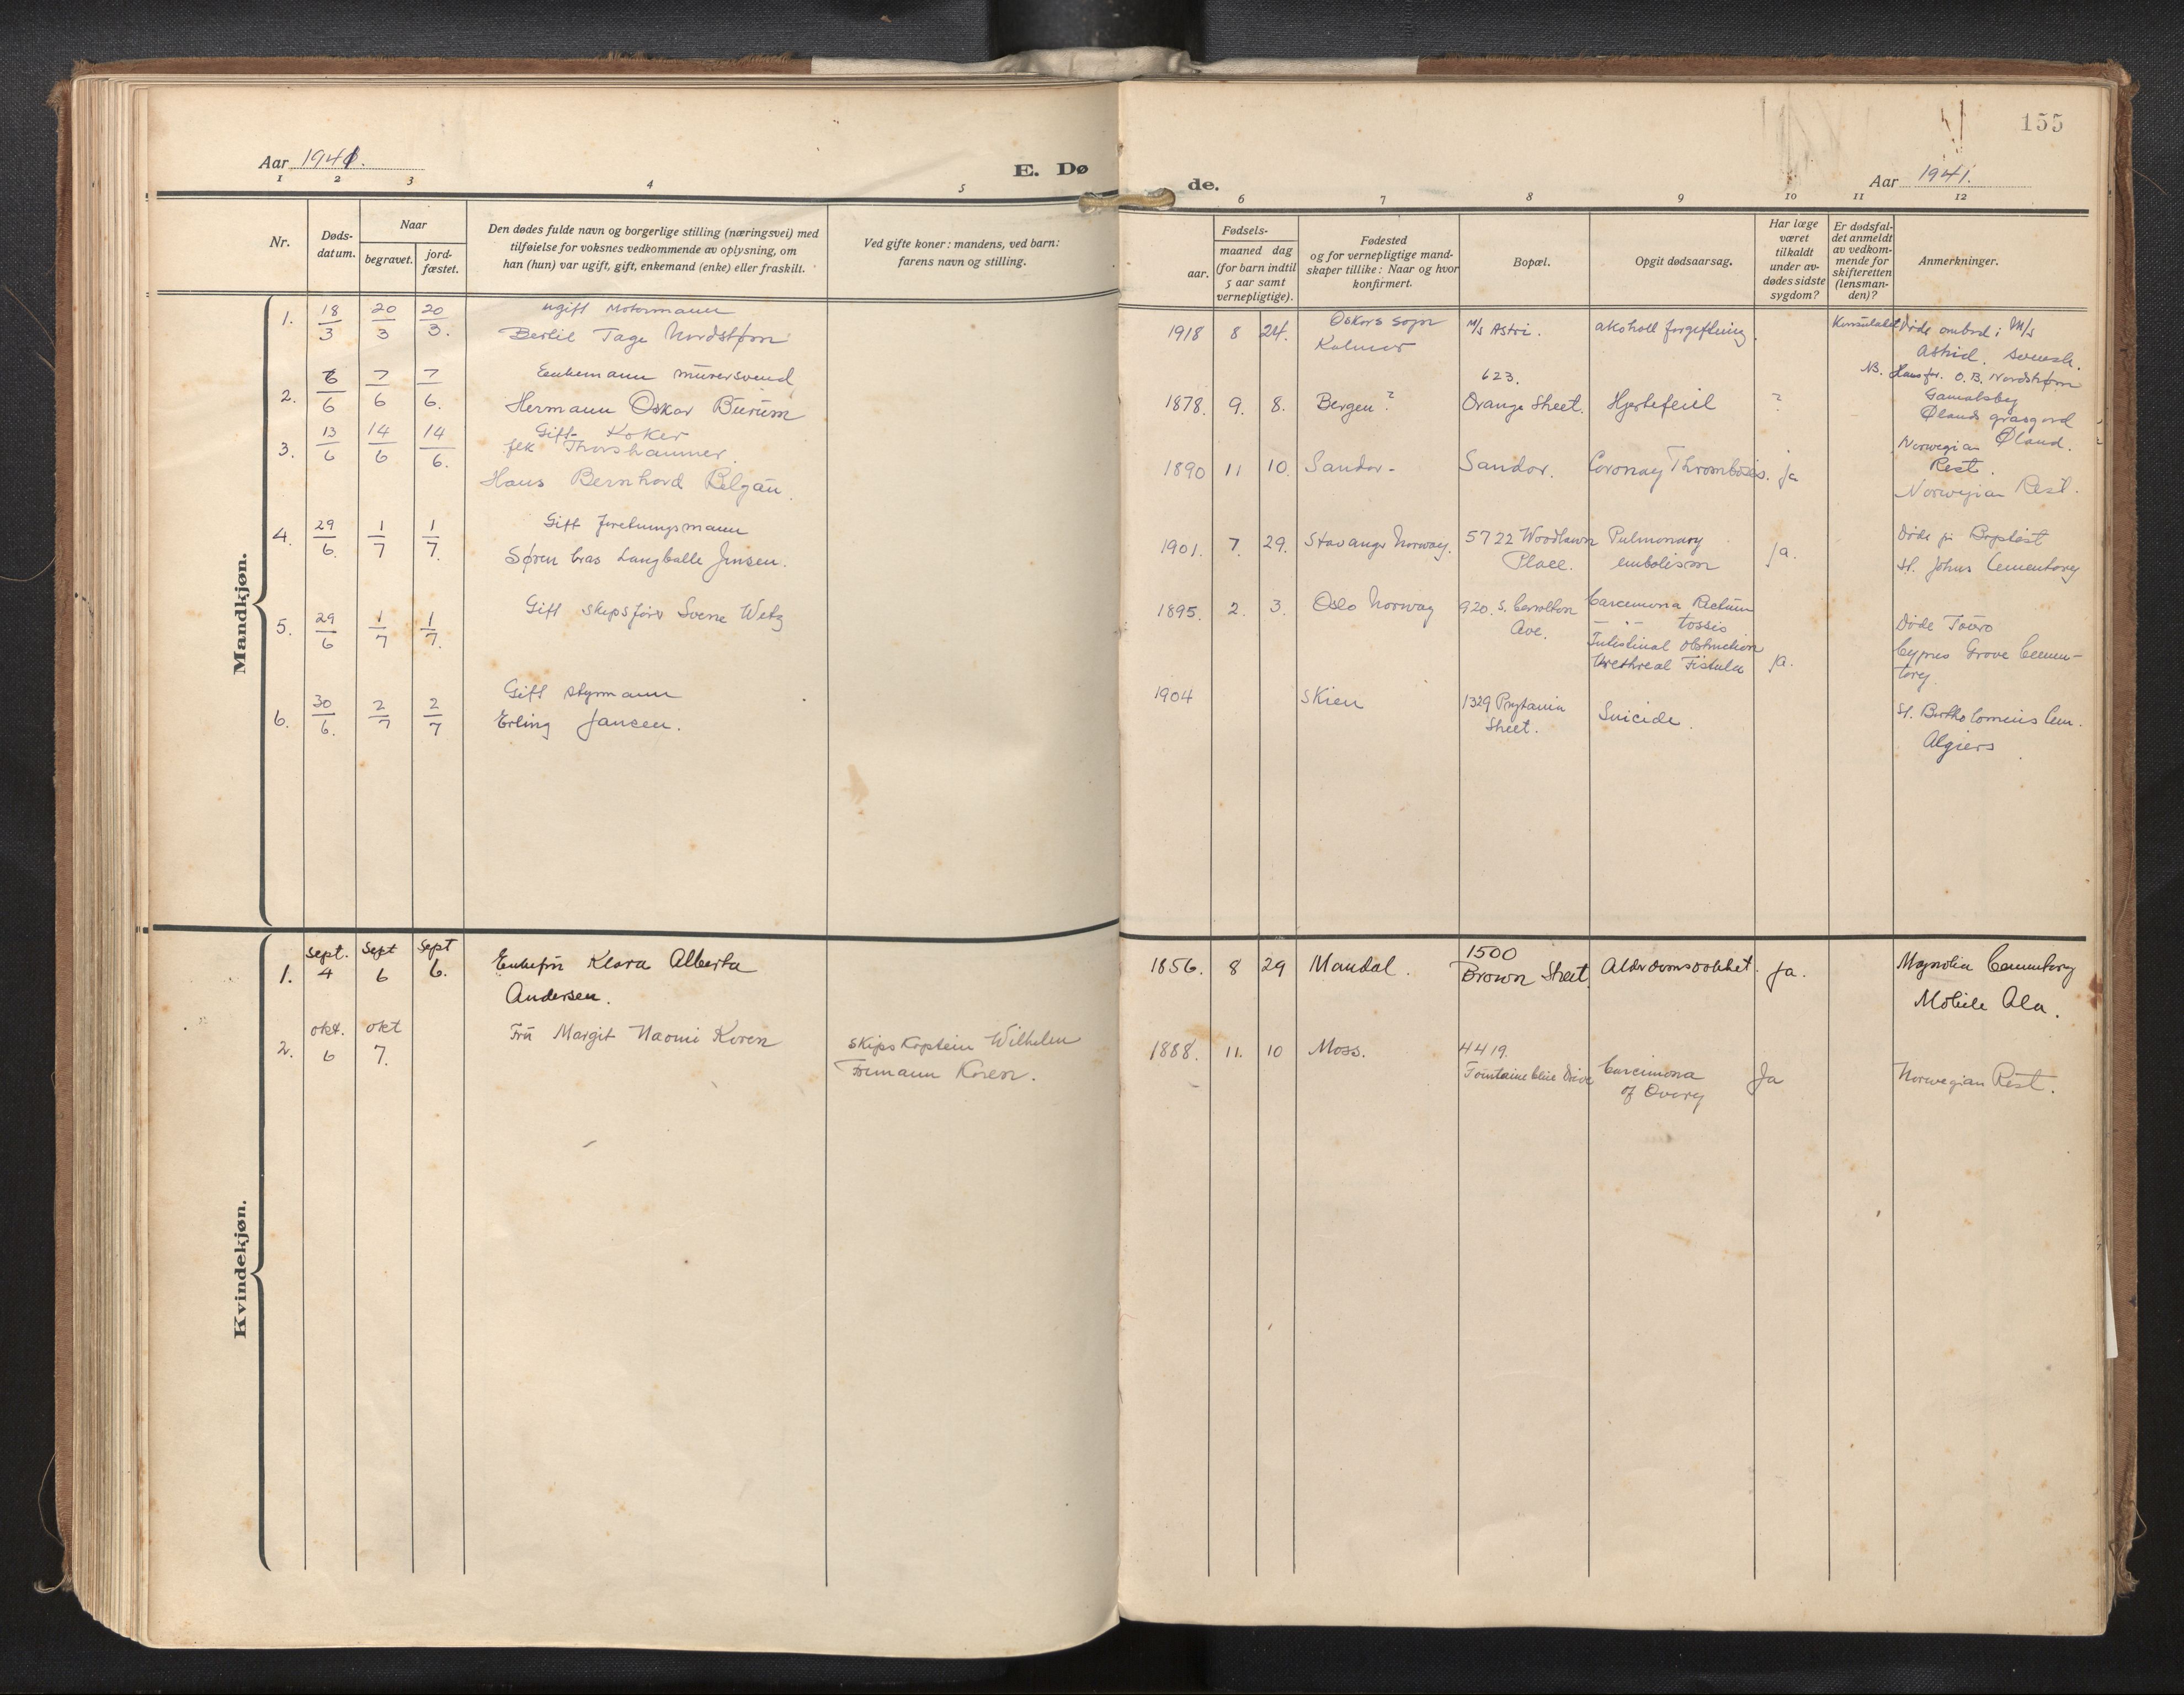 155
Aar 1941.
E. Dø
de.
Aar 1941.
1 2 3 4 5 6 7 8 9 10 11 12
Nr.
Døds-
datum.
Naar
begravet.
jord-
fæstet.
Den dødes fulde navn og borgerlige stilling (næringsvei) med
tilføielse for voksnes vedkommende av oplysning, om
han (hun) var ugift, gift, enkemand (enke) eller fraskilt.
Ved gifte koner: mandens, ved barn:
farens navn og stilling.
Fødsels-
aar.
maaned dag
(for barn indtil
5 aar samt
vernepligtige).
Fødested
og for vernepligtige mand-
skaper tillike: Naar og hvor
konfirmert.
Bopæl.
Opgit dødsaarsag.
Har læge
været
tilkaldt
under av-
dødes sidste
sygdom?
Er dødsfal-
det anmeldt
av vedkom-
mende for
skifteretten
(lensman-
den)?
Anmerkninger.
Mandkjøn.
1. 18/3 20/3 20/3.
ugift Motormann
Bertil Tage Nordstrøm
1918 8 24.
Oskars sogn
Kalmar
M/s Astri.
alkoholl forgiftning.
Konsulatet
Døde ombord i M/s
Astrid. svensk.
NB. Hans far. O. B. Nordstrøm
Gamalsby
Ølands grasgord
Øland.
2. 6/6 7/6 7/6.
Enkemann murersvend
Hermann Oskar Burum
1878. 9. 8. Bergen?
623.
Orange Street.
Hjertefeil
?
Norwegian
Rest.
3. 13/6 14/6 14/6.
Gift- Koker
flk Thorshammer.
Hans Bernhard Relgan.
1890 11 10. Sandar- Sandar. Coronay Thrombosis. ja
Norwegian Rest.
4. 29/6. 1/7 1/7.
Gift forretningsmann
Søren Langballe Jensen.
1901. 7. 29. Stavanger Norway.
5722 Woodlawn
Place.
Pulmonary
embolism
ja.
Døde på Baptist
St. Johns Cementary
5. 29/6 1/7 1/7.
Gift skipsfører Sverre Wetz
1895. 2. 3. Oslo Norway
920. S. Carrolton
Ave.
Carcimona Rectum
- " - tossis
Intestinal obstruction
Urethreal Fistula
ja.
Døde Touro
Cypres Grove Cemen-
tary.
6. 30/6. 2/7 2/7
Gift styrmann
Erling Jansen.
1904 Skien
1329 Prytania
Street.
Suicide.
St. Bartholomeius Cem.
Algiers
Kvindekjøn.
1. Sept. 4 Sept 6 Sept 6.
Enkefru Klara Alberta
Andersen.
1856. 8 29 Mandal.
1500
Brown Street.
Alderdomssvakhet. Ja.
Magnolia Cementary
Mobile Ala.
2. okt. 6 okt 7.
Fru Margit Naomi Koren
Skipskaptein Wilhelm
Koren.
1888. 11. 10 Moss.
4419.
Fountaine bleu Drive
Carcimona
of Overy
Ja
Norwegian Rest.